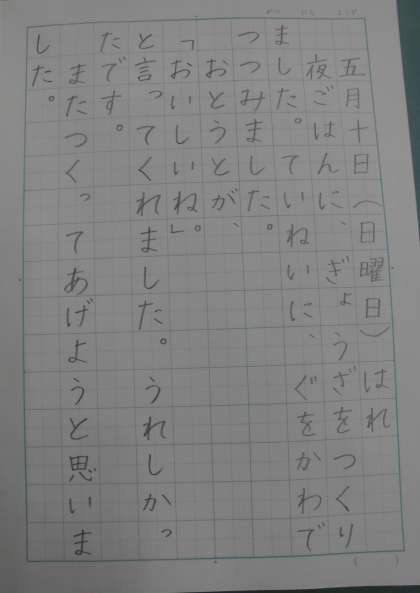 五月十日（日曜日）はれ
夜ごはんに、ぎょうざをつくり
ました。ていねいに、ぐをかわで
つつみました。
おとうとが、
「おいしいね。」
と言ってくれました。うれしかっ
たです。
またつくってあげようと思いま
した。